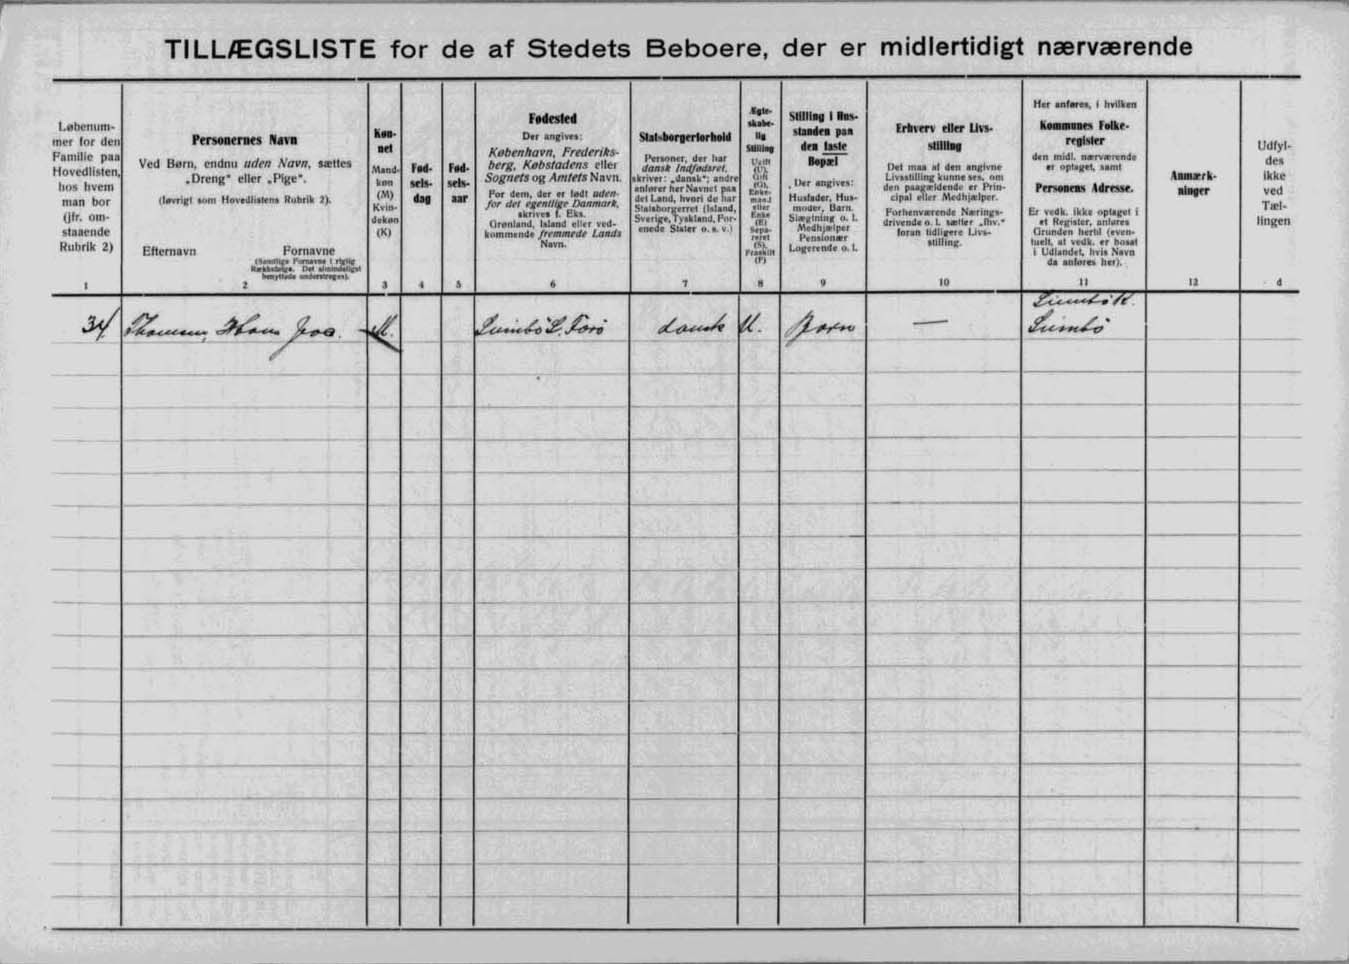 TILLÆGSLISTE for de af Stedets Beboere, der er midlertidigt nærværende
Løbenum-
mer for den
Familie paa
Hovedlisten,
hos hvem
man bor
(jfr. om-
staaende
Rubrik 2)
1
Personernes Navn
Ved Børn, endnu uden Navn, sættes
„Dreng“ eller „Pige“.
(Iøvrigt som Hovedlistens Rubrik 2).
Efternavn Fornavne
(Samtlige Fornavne i rigtig
Rækkefølge. Det almindeligst
benyttede understreges).
2
Køn-
net
Mand-
køn
(M)
Kvin-
dekøn
(K)
3
Fød-
sels-
dag
4
Fød-
sels-
aar
5
Fødested
Der angives:
København, Frederiks-
berg, Købstadens eller
Sognets og Amtets Navn.
For dem, der er født uden-
for det egentlige Danmark,
skrives f. Eks.
Grønland, Island eller ved-
kommende fremmede Lands
Navn.
6
Statsborgerforhold
Personer, der har
dansk Indfødsret,
skriver: „dansk“; andre
anfører her Navnet paa
det Land, hvori de har
Statsborgerret (Island,
Sverige, Tyskland, For-
enede Stater o. s. v.)
7
Ægte-
skabe-
lig
Stilling
Ugift
(U),
Gift
(G),
Enke-
mand
eller
Enke
(E)
Sepa-
reret
(S),
Fraskilt
(F)
8
Stilling i Hus-
standen paa
den faste
Bopæl
Der angives:
Husfader, Hus-
moder, Barn,
Slægtning o. l.
Medhjælper
Pensionær
Logerende o. l.
9
Erhverv eller Livs-
stilling
Det maa af den angivne
Livsstilling kunne ses, om
den paagældende er Prin-
cipal eller Medhjælper.
Forhenværende Nærings-
drivende o. l. sætter „fhv.“
foran tidligere Livs-
stilling.
10
Her anføres, i hvilken
Kommunes Folke-
register
den midl. nærværende
er optaget, samt
Personens Adresse.
Er vedk. ikke optaget i
et Register, anføres
Grunden hertil (even-
tuelt, at vedk. er bosat
i Udlandet, hvis Navn
da anføres her).
11
Anmærk-
ninger
12
Udfyl-
des
ikke
ved
Tæl-
lingen
d
Sumbø K.
34 Thomsen, Hans Joa. M. Sumbø S. Færø dansk U. Barn — Sumbø